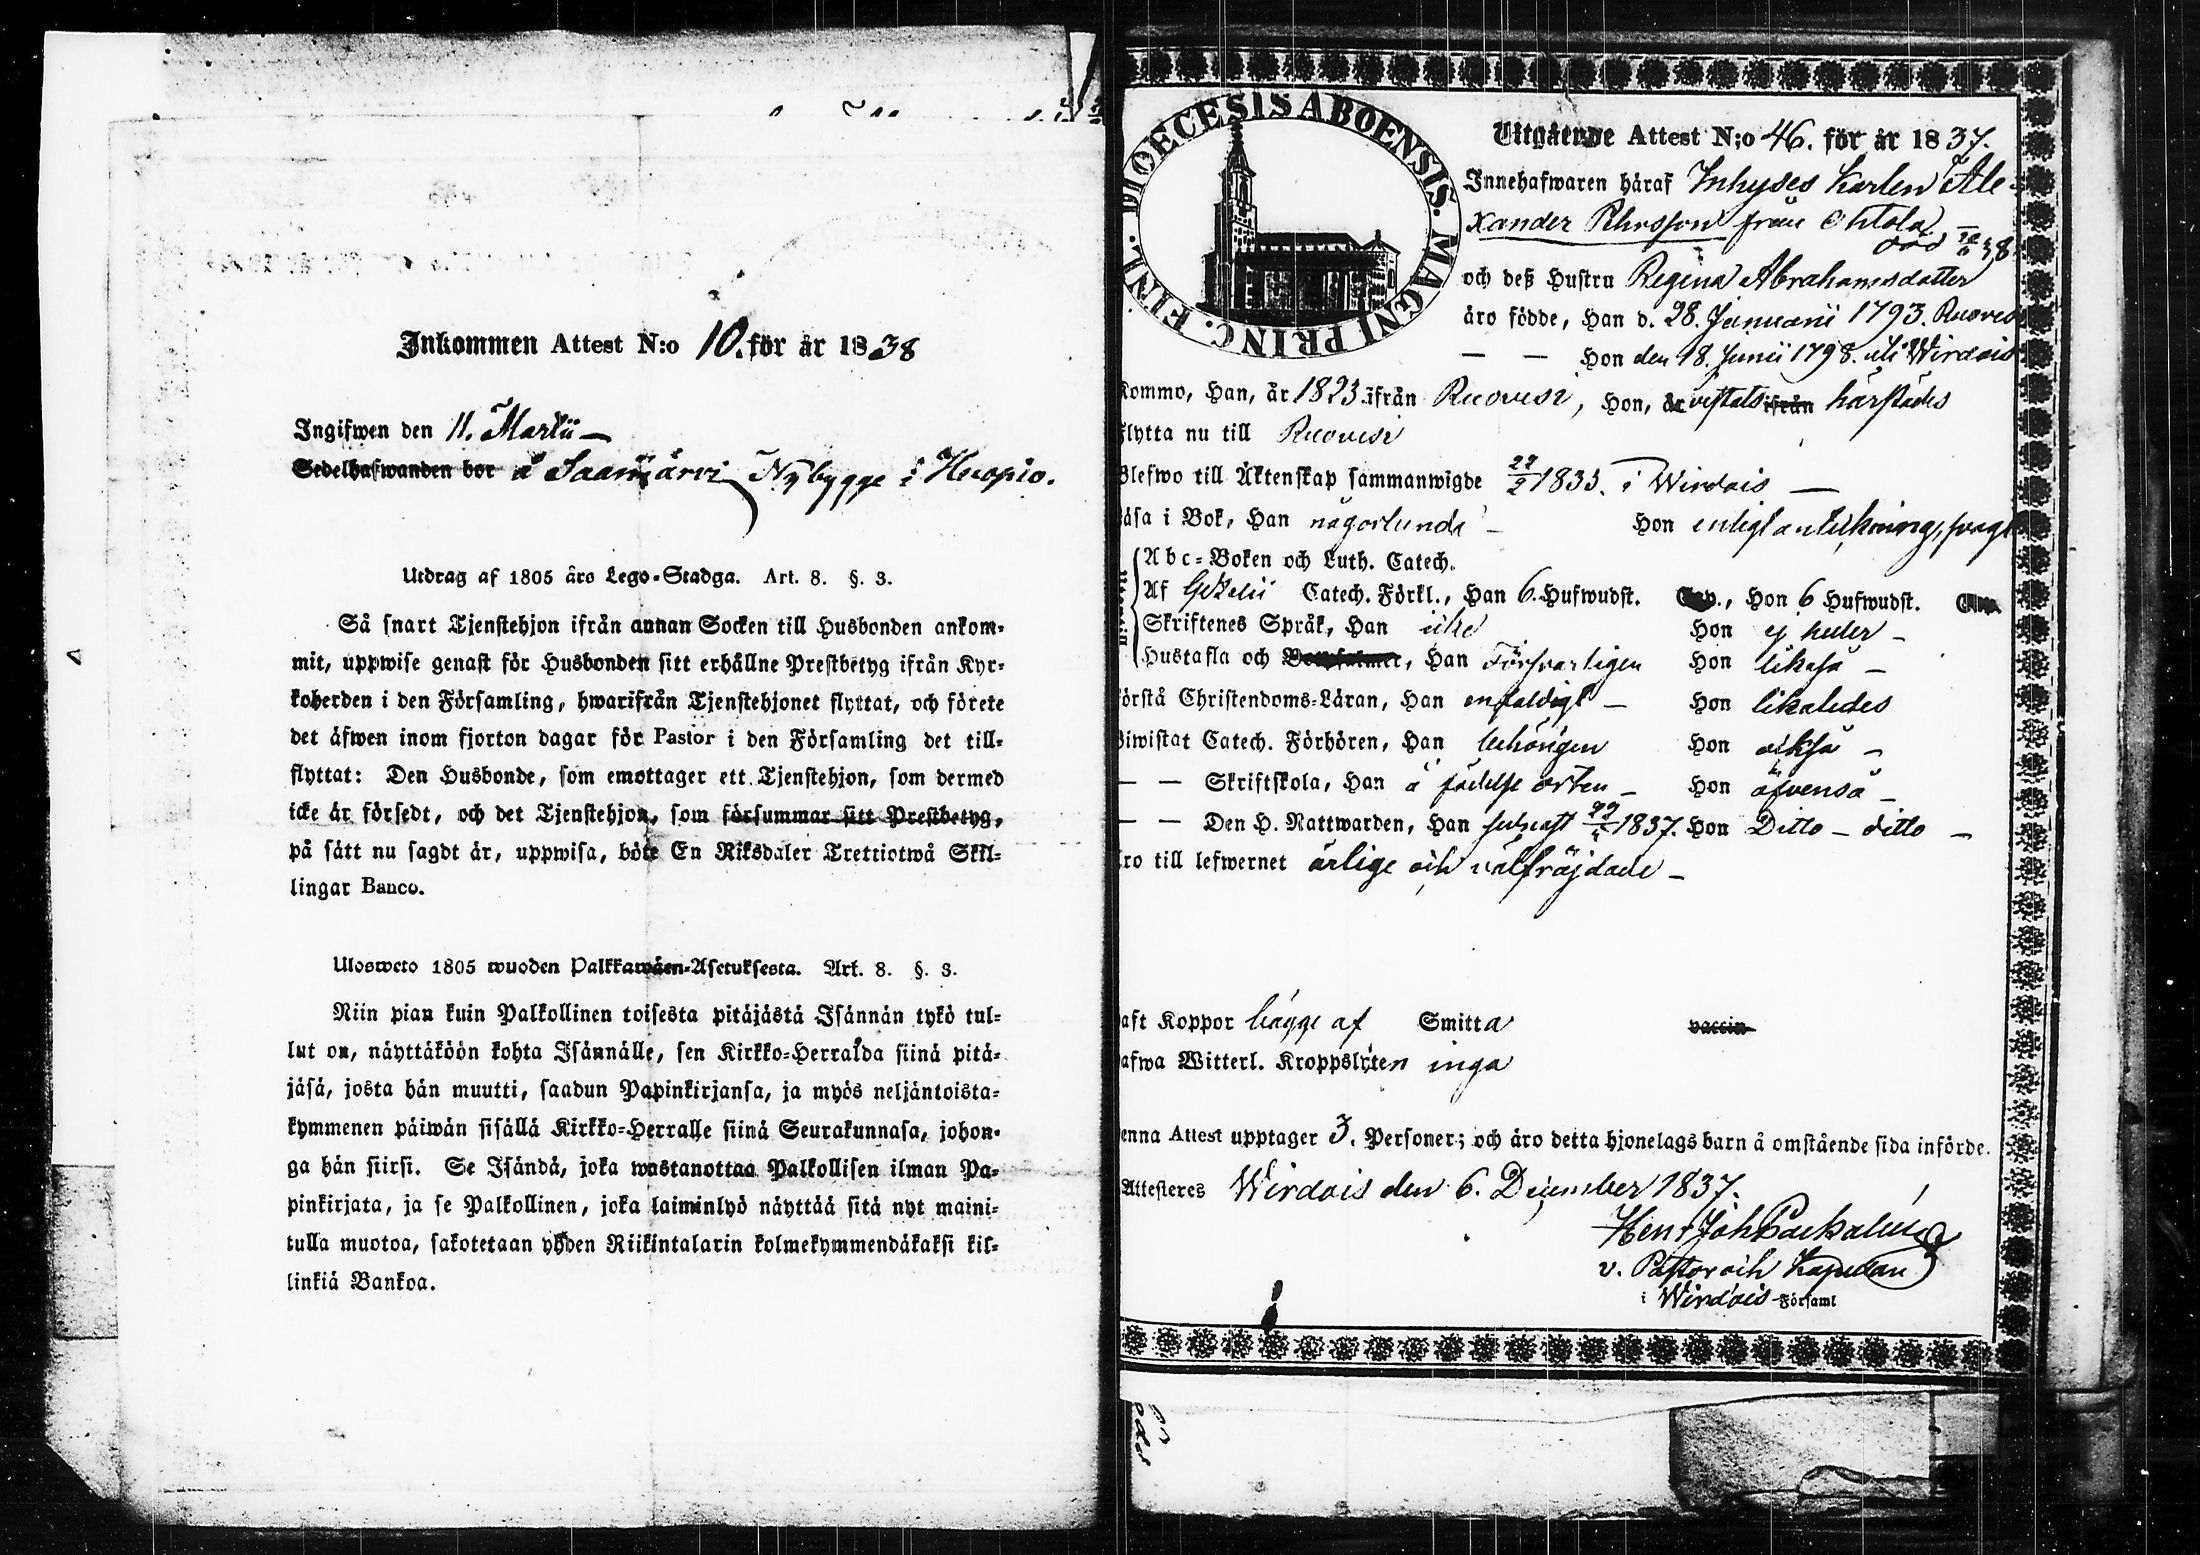 Inkommen Attest N:o 10. för år 1838
Ingifwen den 11. Martii —
Sedelhafwanden bor å Saarijärvi Nybygge i Kuopio.
Utdrag af 1805 års Lego-Stadga. Art. 8. §. 3.
Så snart Tjenstehjon ifrån annan Socken till Husbonden ankom-
mit, uppwise genast för Husbonden sitt erhållne Prestbetyg ifrån Kyr-
koherden i den Församling, hwarifrån Tjenstehjonet flyttat, och förete
det äfwen inom fjorton dagar för Pastor i den Församling det till-
flyttat: Den Husbonde, som emottager ett Tjenstehjon, som dermed
icke är försedt, och det Tjenstehjon, som försummar sitt Prestbetyg,
på sätt nu sagdt är, uppwisa, böte En Riksdaler Trettiotwå Skil-
lingar Banco.
Ulosweto 1805 wuoden Palkkawäen-Asetuksesta. Art. 8. §. 3.
Niin pian kuin Palkollinen toisesta pitäjästä Isännän tykö tul-
lut on, näyttäköön kohta Isännälle, sen Kirkko-Herralda siinä pitä-
jäsä, josta hän muutti, saadun Papinkirjansa, ja myös neljäntoista-
kymmenen päiwän sisällä Kirkko-Herralle siinä Seurakunnasa, johon-
ga hän siirsi. Se Isändä, joka wastanottaa Palkollisen ilman Pa-
pinkirjata, ja se Palkollinen, joka laiminlyö näyttää sitä nyt maini-
tulla muotoa, sakotetaan yhden Riikintalarin kolmekymmendäkaksi kil-
linkiä Bankoa.
DIOECESIS ABOENSIS. MAGNI PRINC. FINL.
Utgående Attest N;o 46. för år 1837.
Innehafwaren häraf Inhyses Karlen Ale-
xander Pehrsson från Ohtola
död 38.
och deß Hustru Regina Abrahamsdotter
äro födde, Han d. 28. Januarii 1793. Ruoves
— — Hon den 18. Junii 1798. uti Wirdois
Kommo, Han, år 1823. ifrån Ruovesi, Hon, är vistats ifrån härstädes
Flytta nu till Ruovesi
Blefwo till Äktenskap sammanwigde 1835. i Wirdois —
Läsa i Bok, Han någorlunda — Hon enligt antekning, svagt
Abc-Boken och Luth. Catech.
Af Gezelii Catech. Förkl., Han 6. Hufwudst. Cap., Hon 6 Hufwudst.
Skriftenes Språk, Han icke Hon ej heller —
Hustafla och Han Försvarligen Hon likaså —
Förstå Christendoms-Läran, Han enfaldigt — Hon likaledes
Biwistat Catech. Förhören, Han behörigen Hon också —
— — Skriftskola, Han å födelse orten — Hon äfvenså —
— — Den H. Nattwarden, Han sednast 1837. Hon Ditto — ditto —
Äro till lefwernet ärlige och välfräjdade —
Haft Koppor bägge af Smitta vaccin
Hafwa Witterl. Kroppslyten inga
Denna Attest upptager 3. Personer; och äro detta hjonelags barn å omstående sida införde.
Attesteres Wirdois den 6. December 1837.
Henr Joh
v. Pastor och Kapellan
i Wirdois Församl